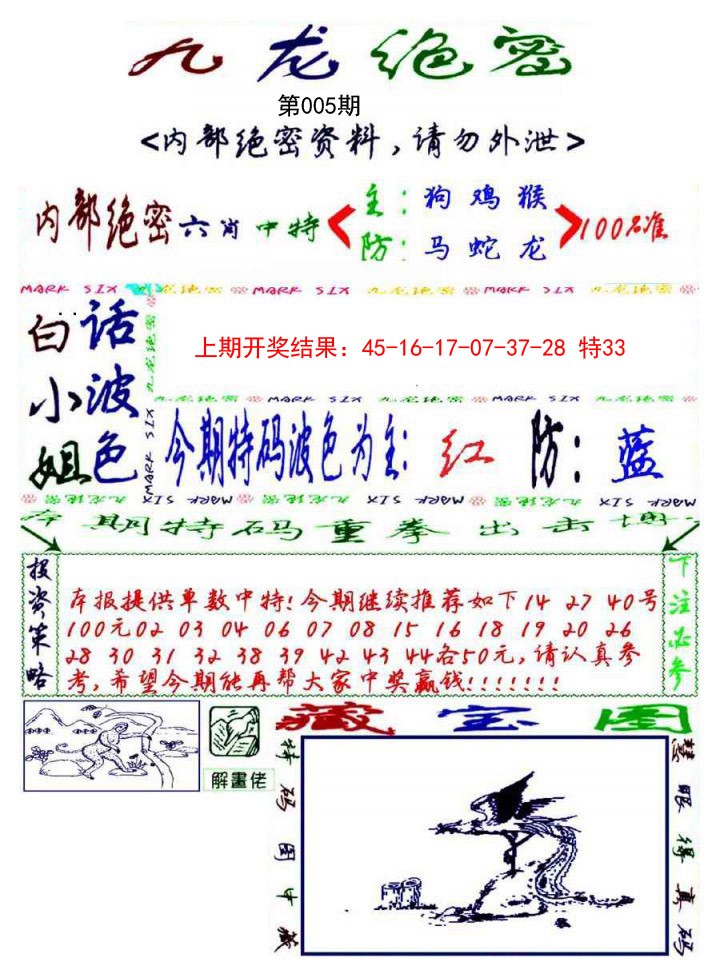 九龙绝密
第005期
<内部绝密资料,请勿外泄>
内部绝密六肖中特
主:狗鸡猴
防:马蛇龙
100%准
MARK SIX 九龙绝密 MARK SIX 九龙绝密 MARK SIX 九龙绝密
白话小波姐色
九龙绝密
MARK SIX
上期开奖结果:45-16-17-07-37-28 特33
九龙绝密 MARK SIX 九龙绝密 MARK SIX 九龙绝密
今期特码波色为主:红 防:蓝
九龙绝密 MARK SIX 九龙绝密 MARK SIX 九龙绝密 MARK SIX
本期特码重拳出击博
投资策略
本报提供单数中特!今期继续推荐如下14 27 40号
100元02 03 04 06 07 08 15 16 18 19 20 26
28 30 31 32 38 39 42 43 44各50元,请认真参
考,希望今期能再帮大家中奖赢钱!!!!!!!
下注必参
解畫佬
藏宝图
特码图中藏
慧眼得真码